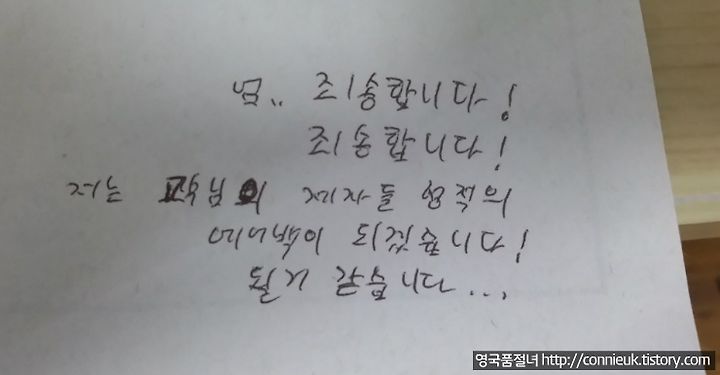 님.. 죄송합니다!
죄송합니다!
저는 교수님의 제자들 성적의
에너백이 되겠습니다!
될거 같습니다...
영국품절녀 http://connieuk.tistory.com